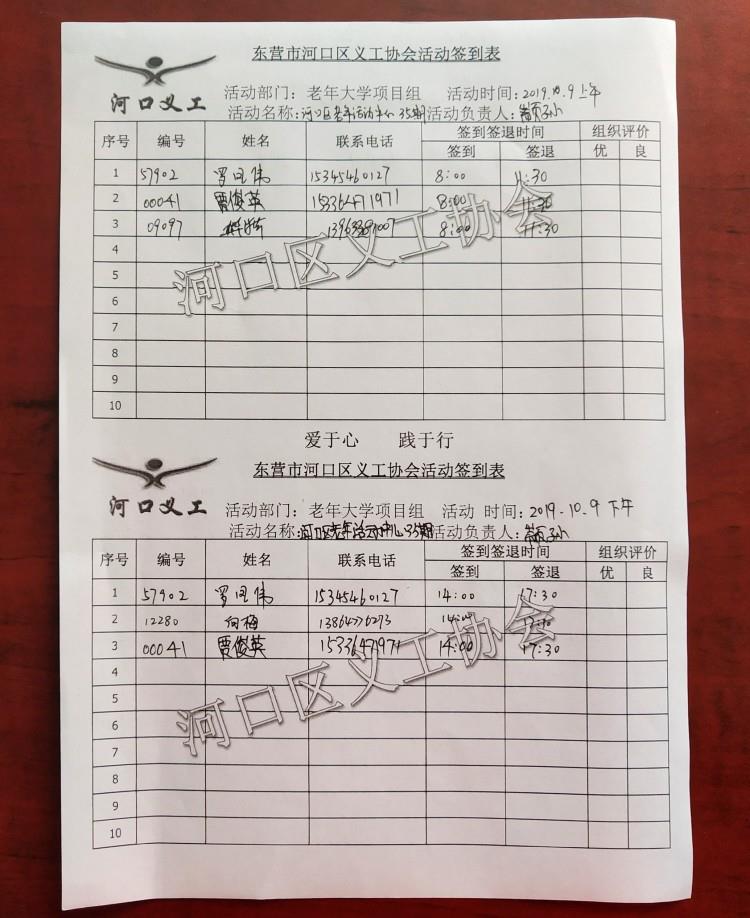 东营市河口区义工协会活动签到表
河口义工
活动部门：老年大学项目组 活动时间：2019.10.9上午
活动名称：河口区老年活动中心35期 活动负责人：
序号 编号 姓名 联系电话 签到签退时间 组织评价
签到 签退 优 良
1 57902 15345460127 8:00 11:30
2 00041 贾俊英 15336471971 8:00 11:30
3 09097 8:00 11:30
4
5
6
7
8
9
10
河口区义工协会
爱于心 践于行
东营市河口区义工协会活动签到表
河口义工
活动部门：老年大学项目组 活动 时间：2019.10.9 下午
活动名称：河口区老年活动中心35期 活动负责人：
序号 编号 姓名 联系电话 签到签退时间 组织评价
签到 签退 优 良
1 57902 15345460127 14:00 17:30
2 12280 向梅 13864776273 14:00
3 00041 贾俊英 15336471971 14:00 17:30
4
5
6
7
8
9
10
河口区义工协会